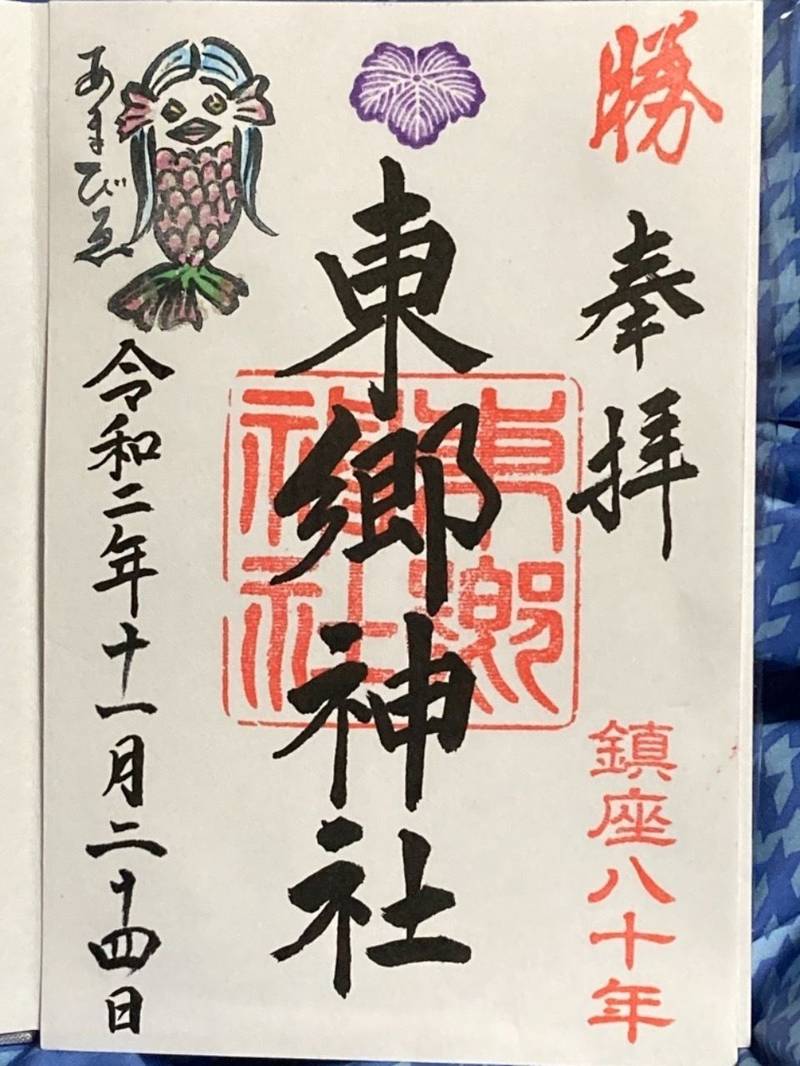 勝
奉拝
鎮座八十年
東郷神社
東郷神社
あまびゑ
令和二年十一月二十四日